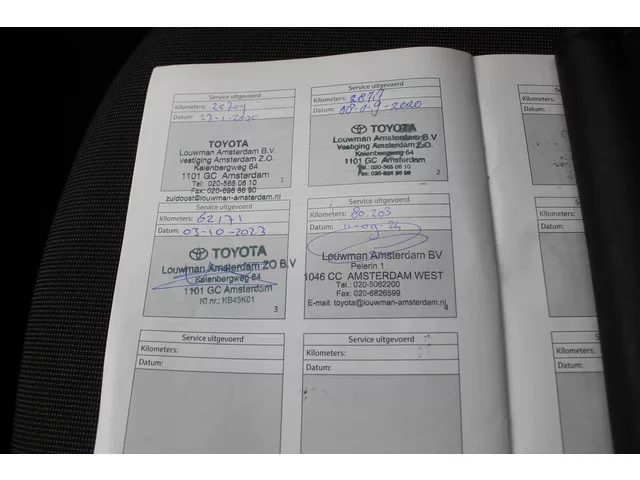 Service uitgevoerd
Kilometers:
Datum: 27-1-2020
TOYOTA
Louwman Amsterdam B.V.
vestiging Amsterdam Z.O.
Keienbergweg 64
1101 GC Amsterdam
Tel: 020-565 06 10
Fax: 020-696 86 90
zuidoost@louwman-amsterdam.nl
1
Service uitgevoerd
Kilometers:
Datum: 08-09-2020
TOYOTA
Louwman Amsterdam B.V.
Vestiging Amsterdam Z.O.
Keienbergweg 64
1101 GC Amsterdam
Tel.: 020-565 06 10
Fax: 020-696 86 90
2
Service uitgevoerd
Kilometers: 62171
Datum: 03-10-2023
TOYOTA
Louwman Amsterdam ZO B.V
Keienbergweg 64
1101 GC Amsterdam
Kl nr.: KB43K01
3
Service uitgevoerd
Kilometers: 80.203
Datum: 11-09-24
Louwman Amsterdam BV
Pelerin 1
1046 CC AMSTERDAM WEST
Tel.: 020-5062200
Fax: 020-6826599
E-mail: toyota@louwman-amsterdam.nl
4
Service uitgevoerd
Kilometers:
Datum:
Service uitgevoerd
Kilometers:
Datum:
Kilom
Datum
Kilo
Datu
Kilo
Dat